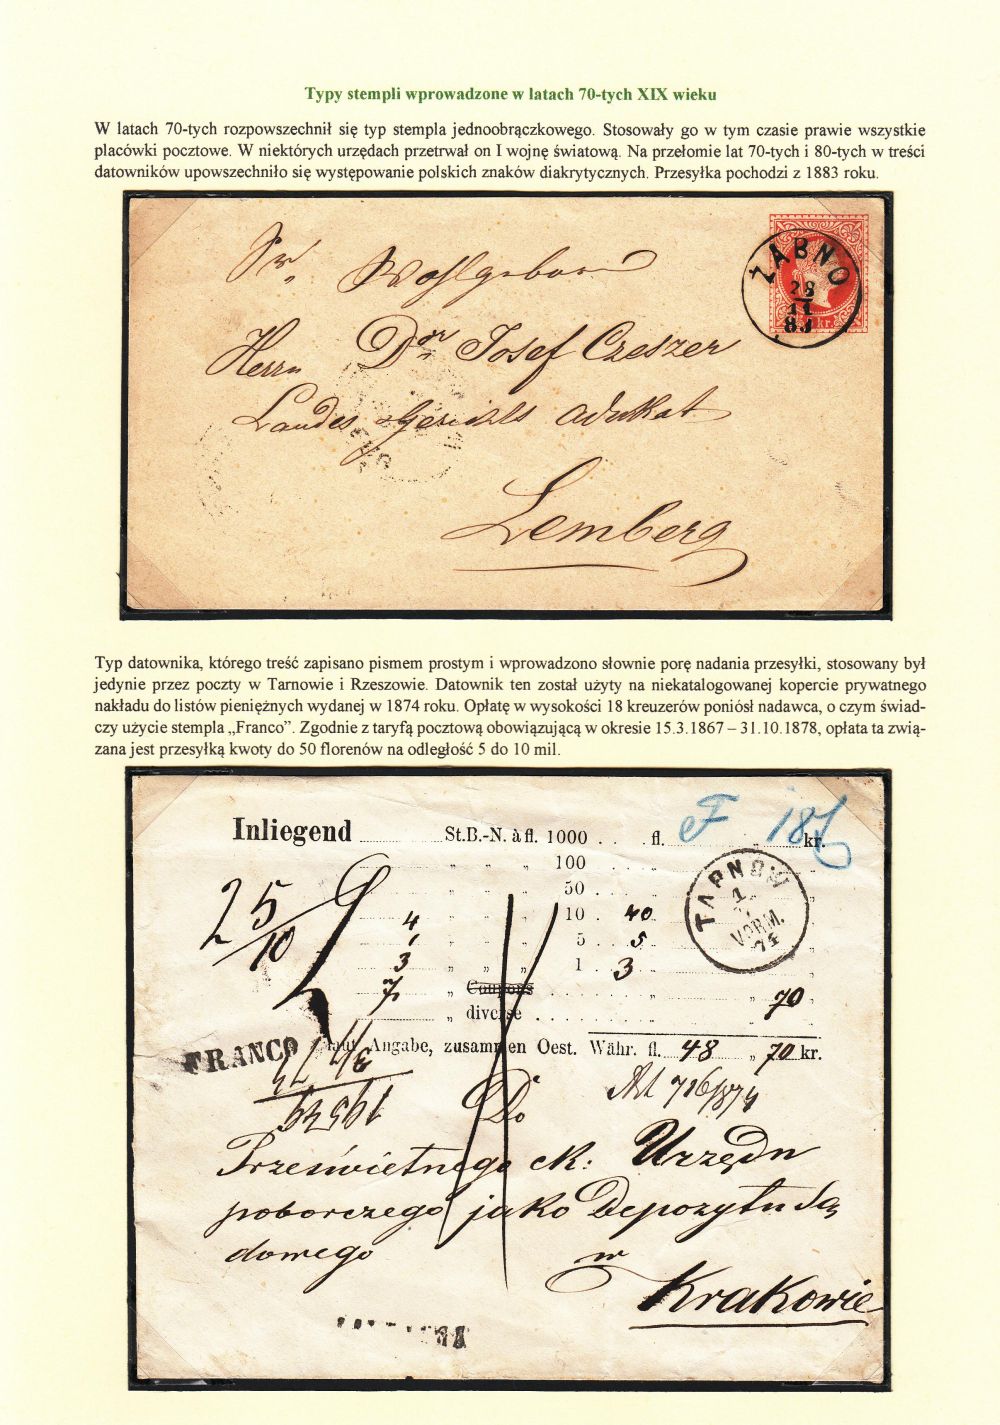 Typy stempli wprowadzone w latach 70-tych XIX wieku
W latach 70-tych rozpowszechnił się typ stempla jednoobrączkowego. Stosowały go w tym czasie prawie wszystkie
placówki pocztowe. W niektórych urzędach przetrwał on I wojnę światową. Na przełomie lat 70-tych i 80-tych w treści
datowników upowszechniło się występowanie polskich znaków diakrytycznych. Przesyłka pochodzi z 1883 roku.
ŻABNO
28
11
83
kr.
Sr. Wohlgeboren
Herrn Dor Josef Czeszer
Landes Gerichts Advokat
Lemberg
Typ datownika, którego treść zapisano pismem prostym i wprowadzono słownie porę nadania przesyłki, stosowany był
jedynie przez poczty w Tarnowie i Rzeszowie. Datownik ten został użyty na niekatalogowanej kopercie prywatnego
nakładu do listów pieniężnych wydanej w 1874 roku. Opłatę w wysokości 18 kreuzerów poniósł nadawca, o czym świad-
czy użycie stempla „Franco”. Zgodnie z taryfą pocztową obowiązującą w okresie 15.3.1867 – 31.10.1878, opłata ta zwią-
zana jest przesyłką kwoty do 50 florenów na odległość 5 do 10 mil.
Inliegend St.B.-N. à fl. 1000 fl. F 18 kr.
" " " 100
" " " 50
4 " " " 10 40
1 " " " 5 5
3 " " " 1 3
7 " Coupons " 70
" diverse
25/10
TARNOW
1
VORM.
74
FRANCO laut Angabe, zusammen Oest. Währ. fl. 48 " 70 kr.
19539
Do
716/874
Prześwietnego ck: Urzędu
poborczego jako Depozytu Są
dowego w
Krakowie